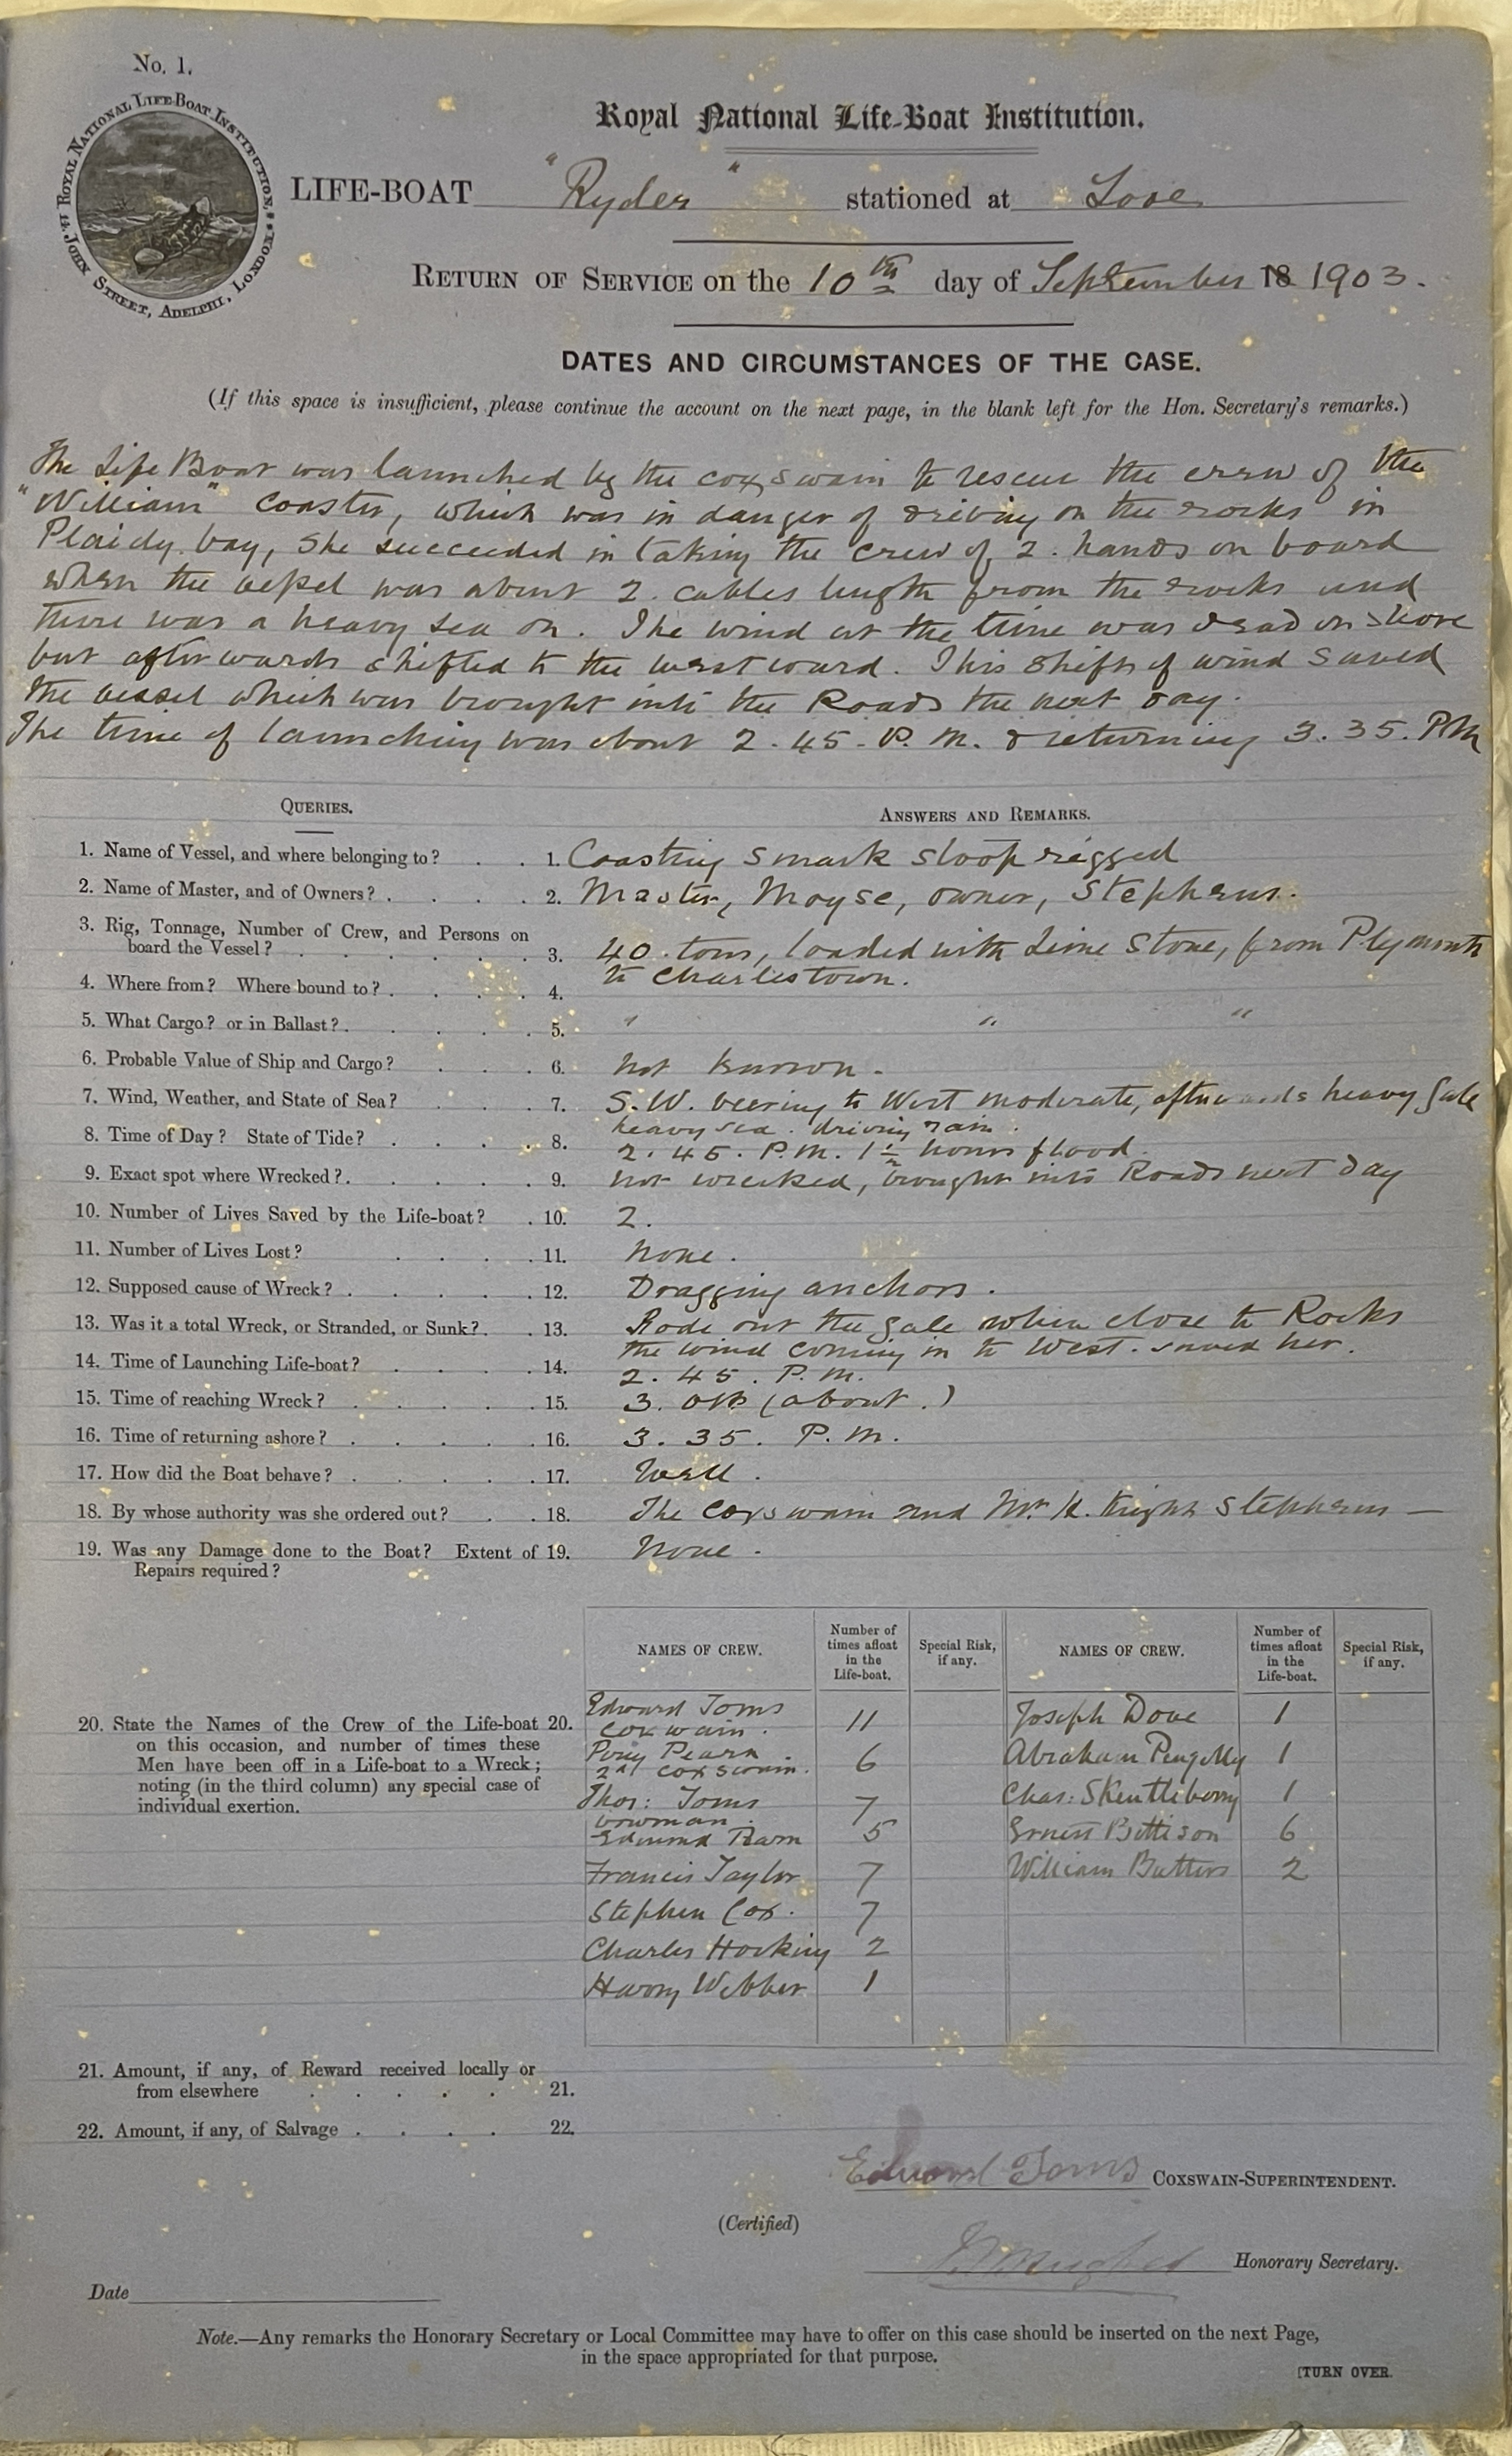 No. 1.
ROYAL NATIONAL LIFE-BOAT INSTITUTION.
JOHN STREET, ADELPHI, LONDON.
Royal National Life-Boat Institution.
LIFE-BOAT "Ryder" stationed at Looe
RETURN OF SERVICE on the 10th day of September 18 1903.
DATES AND CIRCUMSTANCES OF THE CASE.
(If this space is insufficient, please continue the account on the next page, in the blank left for the Hon. Secretary's remarks.)
The Life Boat was launched by the coxswain to rescue the crew of the
"William" coaster, which was in danger of driving on the rocks in
Plaidy bay, she succeeded in taking the crew of 2. hands on board
when the vessel was about 2. cables length from the rocks and
there was a heavy sea on. The wind at the time was dead on shore
but afterwards shifted to the westward. This shift of wind saved
the vessel which was brought into the Roads the next day.
The time of launching was about 2.45. P.M. & returning 3.35. PM
QUERIES.
ANSWERS AND REMARKS.
1. Name of Vessel, and where belonging to? 1. Coasting smack sloop rigged
2. Name of Master, and of Owners? 2. Master, Moyse, owner, Stephens.
3. Rig, Tonnage, Number of Crew, and Persons on
board the Vessel? 3. 40 tons, loaded with Lime Stone, from Plymouth
4. Where from? Where bound to? 4. to Charlestown.
5. What Cargo? or in Ballast? 5. " " "
6. Probable Value of Ship and Cargo? 6. not known.
7. Wind, Weather, and State of Sea? 7. S.W. veering to West moderate, afterwards heavy gale
heavy sea. driving rain.
8. Time of Day? State of Tide? 8. 2.45. P.M. 1½ hours flood
9. Exact spot where Wrecked? 9. not wrecked, brought into Roads next day
10. Number of Lives Saved by the Life-boat? 10. 2.
11. Number of Lives Lost? 11. none.
12. Supposed cause of Wreck? 12. Dragging anchors.
13. Was it a total Wreck, or Stranded, or Sunk? 13. Rode out the gale when close to Rocks
the wind coming in to West. saved her.
14. Time of Launching Life-boat? 14. 2.45. P.M.
15. Time of reaching Wreck? 15. 3. (about.)
16. Time of returning ashore? 16. 3.35. P.M.
17. How did the Boat behave? 17. Well.
18. By whose authority was she ordered out? 18. The coxswain and Mr. Stephens —
19. Was any Damage done to the Boat? Extent of 19. None.
Repairs required?
NAMES OF CREW. Number of times afloat in the Life-boat. Special Risk, if any. NAMES OF CREW. Number of times afloat in the Life-boat. Special Risk, if any.
20. State the Names of the Crew of the Life-boat 20.
on this occasion, and number of times these
Men have been off in a Life-boat to a Wreck;
noting (in the third column) any special case of
individual exertion.
Edward Toms 11
coxwain.
Pearn 6
2nd coxswain.
Thos: Toms 7
bowman.
Edmund Pearn 5
Francis Taylor 7
Stephen Cox. 7
Charles Hocking 2
Harry Webber 1
Joseph Dove 1
Abraham Pengelly 1
Chas: Skentlebery 1
Ernest Bettison 6
William Butters 2
21. Amount, if any, of Reward received locally or
from elsewhere 21.
22. Amount, if any, of Salvage 22.
Edward Toms COXSWAIN-SUPERINTENDENT.
(Certified)
Honorary Secretary.
Date
Note.—Any remarks the Honorary Secretary or Local Committee may have to offer on this case should be inserted on the next Page,
in the space appropriated for that purpose.
[TURN OVER.